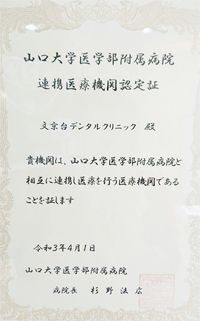 山口大学医学部附属病院
連携医療機関認定証
文京台デンタルクリニック 殿
貴機関は、山口大学医学部附属病院と
相互に連携し医療を行う医療機関である
ことを証します
令和3年4月1日
山口大学医学部附属病院
病院長 杉野法広